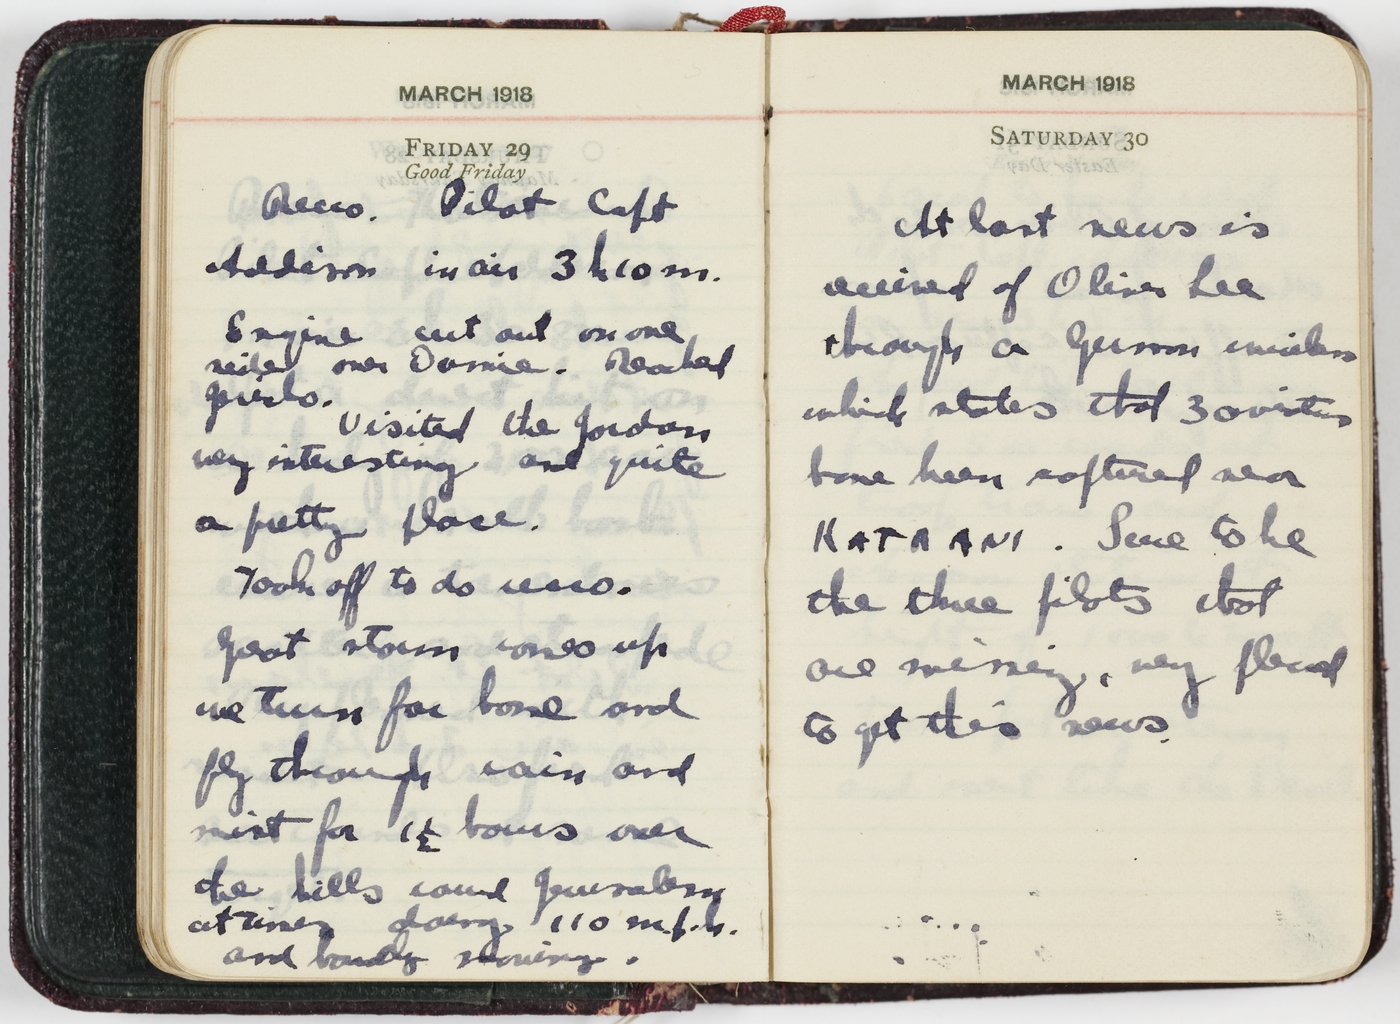 MARCH 1918
FRIDAY 29
Good Friday
Recco. Pilot Capt
Addison in air 3 h 10 m.
Engine cut out on one
side over Damie. Reached
Jericho.
Visited the Jordan
very interesting and quite
a pretty place.
Took off to do recco.
Great storm comes up
we turn for home and
fly through rain and
mist for 1½ hours over
the hills round Jerusalem
at times doing 110 m.p.h.
and hardly moving.
MARCH 1918
SATURDAY 30
At last news is
received of Oliver Lee
through a German wireless
which states that 3 aviators
have been captured near
KATRANI. Sure to be
the three pilots that
are missing, very pleased
to get this news.